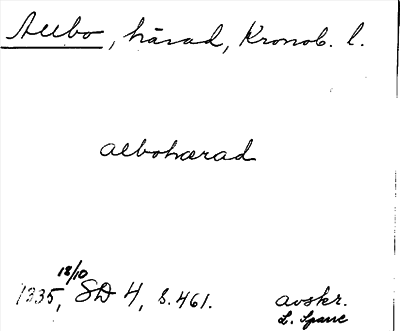 Allbo, härad, Kronob. l.
albohærad
1335, 18/10 SD 4, s. 461.
avskr.